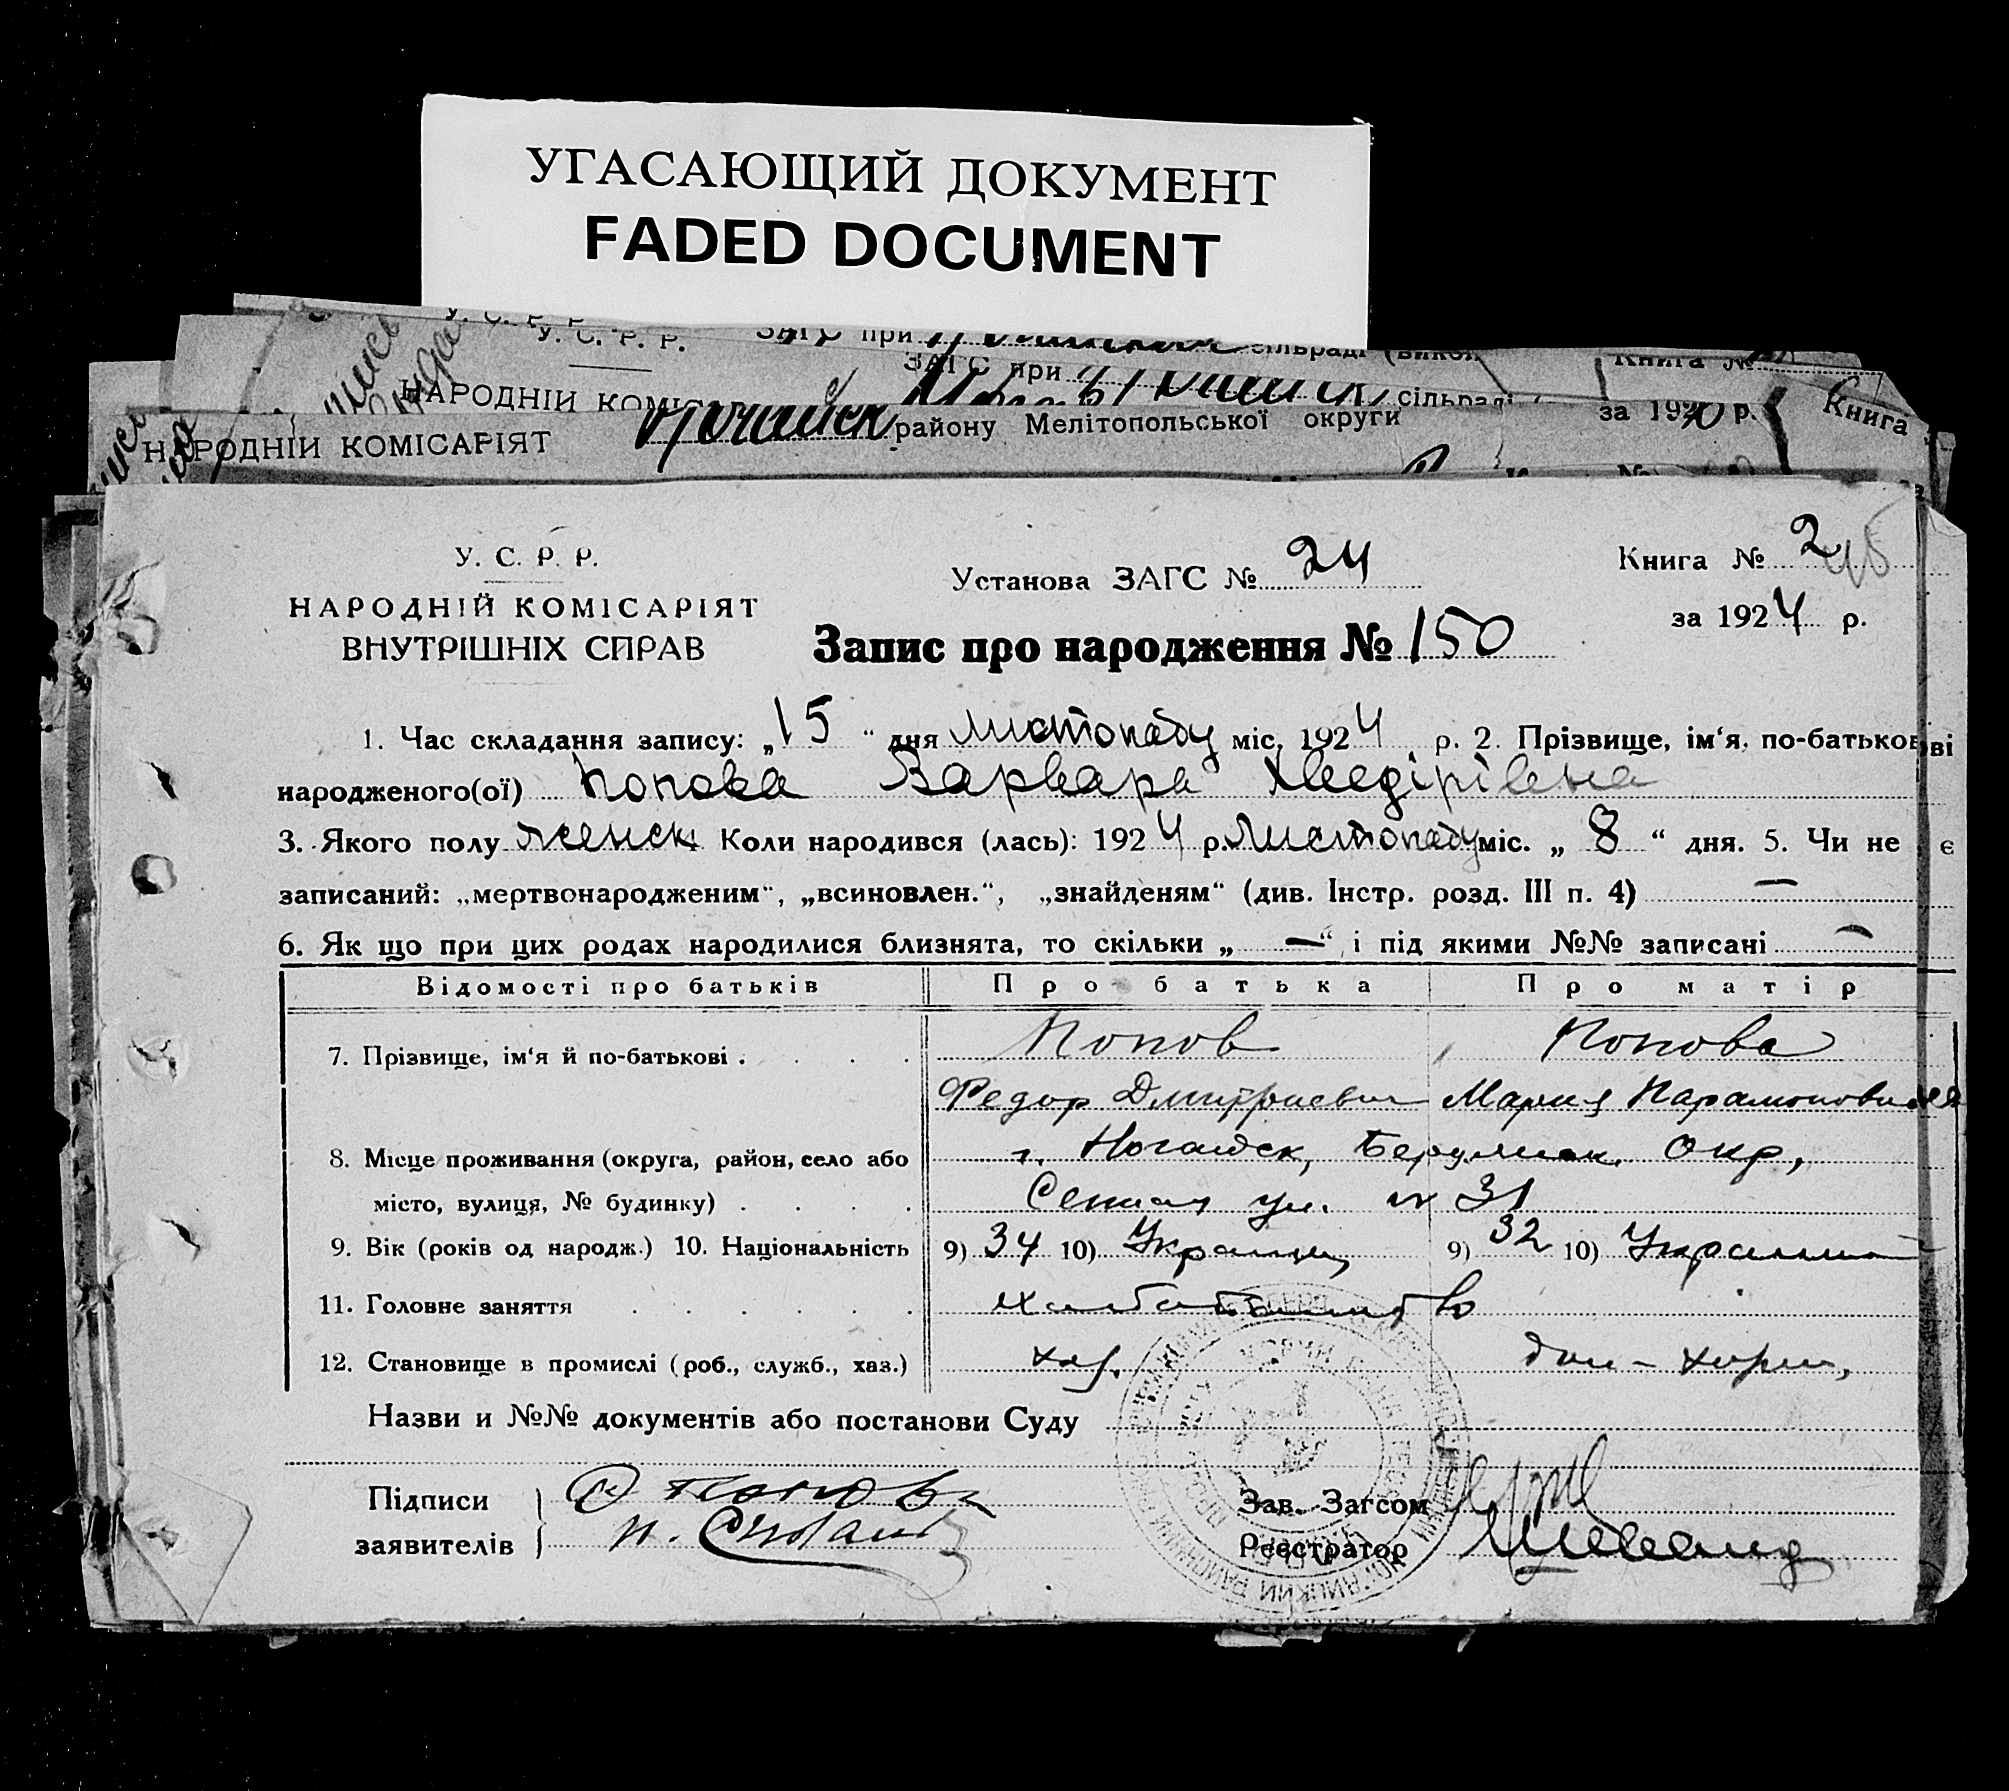 УГАСАЮЩИЙ ДОКУМЕНТ
FADED DOCUMENT
У. С. Р. Р.
ЗАГС при
У. С. Р. Р.
ЗАГС при сільраді
Книга №
НАРОДНІЙ
за 1920 р.
Книга
НАРОДНІЙ КОМІСАРІЯТ
району Мелітопольської округи
У. С. Р. Р.
Установа ЗАГС № 24
Книга № 2
НАРОДНІЙ КОМІСАРІЯТ
за 1924 р.
ВНУТРІШНІХ СПРАВ
Запис про народження № 150
1. Час складання запису: „15“ дня листопаду міс. 1924 р. 2. Прізвище, ім‘я, по-батькові
народженого(ої) Попова Варвара Хведірівна
3. Якого полу женск Коли народився (лась): 1924 р. Листопаду міс. „ 8 “ дня. 5. Чи не є
записаний: „мертвонародженим“, „всиновлен.“, „знайденям“ (див. Інстр. розд. III п. 4) —
6. Як що при цих родах народилися близнята, то скільки „ — “ і під якими №№ записані —
Відомості про батьків Про батька Про матір
7. Прізвище, ім‘я й по-батькові . . . . Попов Попова
Федор Дмитриевич Мария Парамоновна
8. Місце проживання (округа, район, село або г. Ногайск, Бердянск. Окр,
місто, вулиця, № будинку) . . . . Сенная ул. № 31
9. Вік (років од народж.) 10. Національність 9) 34 10) Украинец 9) 32 10)
11. Головне заняття . . . . . . Хлебопашество
12. Становище в промислі (роб., служб., хаз.) хаз. дом-
Назви и №№ документів або постанови Суду
Підписи Попов Зав. Загсом
заявителів Реєстратор